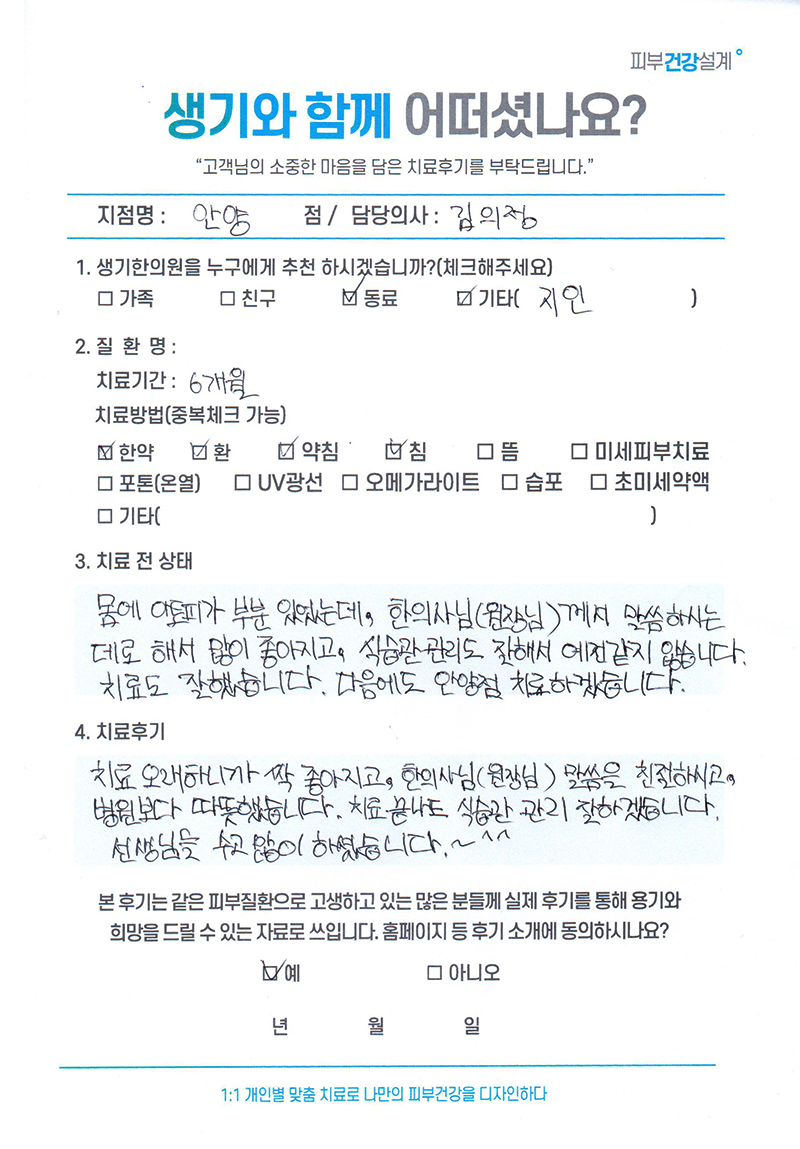 피부건강설계
생기와 함께 어떠셨나요?
“고객님의 소중한 마음을 담은 치료후기를 부탁드립니다.”
지점명 : 안양 점 / 담당의사 : 김의정
1. 생기한의원을 누구에게 추천 하시겠습니까?(체크해주세요)
☐ 가족 ☐ 친구 ☑ 동료 ☑ 기타( 지인 )
2. 질 환 명 :
치료기간 : 6개월
치료방법(중복체크 가능)
☑ 한약 ☑ 환 ☑ 약침 ☑ 침 ☐ 뜸 ☐ 미세피부치료
☐ 포톤(온열) ☐ UV광선 ☐ 오메가라이트 ☐ 습포 ☐ 초미세약액
☐ 기타( )
3. 치료 전 상태
몸에 아토피가 부분 있었는데, 한의사님(원장님)께서 말씀하시는
데로 해서 많이 좋아지고, 식습관관리도 잘해서 예전같지 않습니다.
치료도 잘했습니다. 다음에도 안양점 치료하겠습니다.
4. 치료후기
치료 오래하니까 싹 좋아지고, 한의사님(원장님) 말씀을 친절하시고,
병원보다 따뜻했습니다. 치료 끝나도 식습관 관리 잘하겠습니다.
선생님들 수고 많이 하셨습니다.~^^
본 후기는 같은 피부질환으로 고생하고 있는 많은 분들께 실제 후기를 통해 용기와
희망을 드릴 수 있는 자료로 쓰입니다. 홈페이지 등 후기 소개에 동의하시나요?
☑ 예 ☐ 아니오
년 월 일
1:1 개인별 맞춤 치료로 나만의 피부건강을 디자인하다